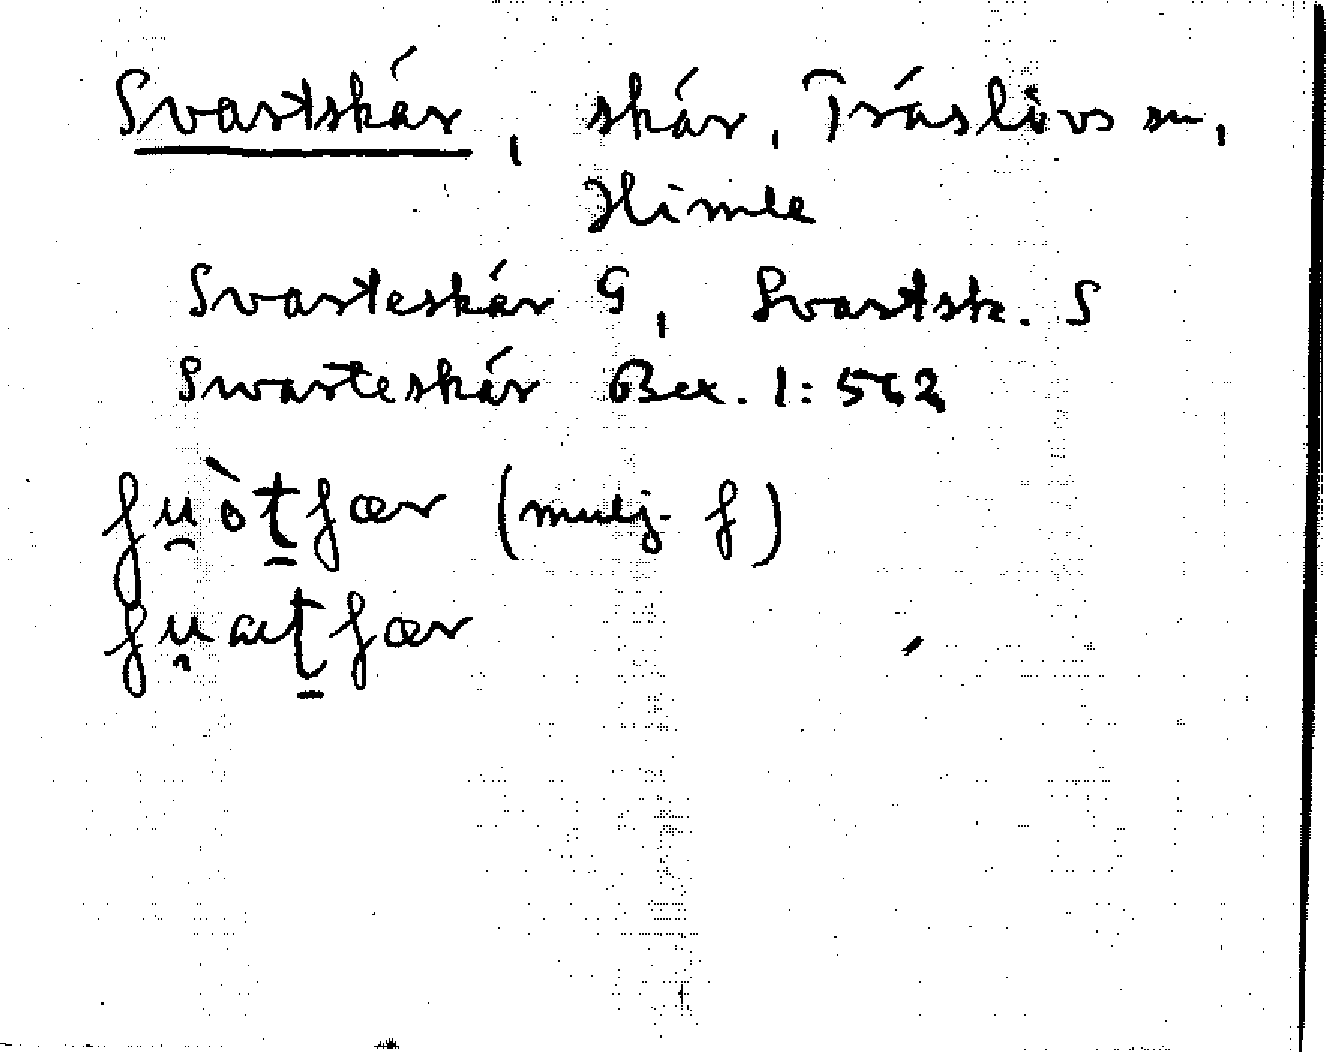 Svartskär, skär, Träslövs sn,
Himle
Svarteskär G, Svartsk. S
Swarteskär Bex. 1: 562
(mulj. f)